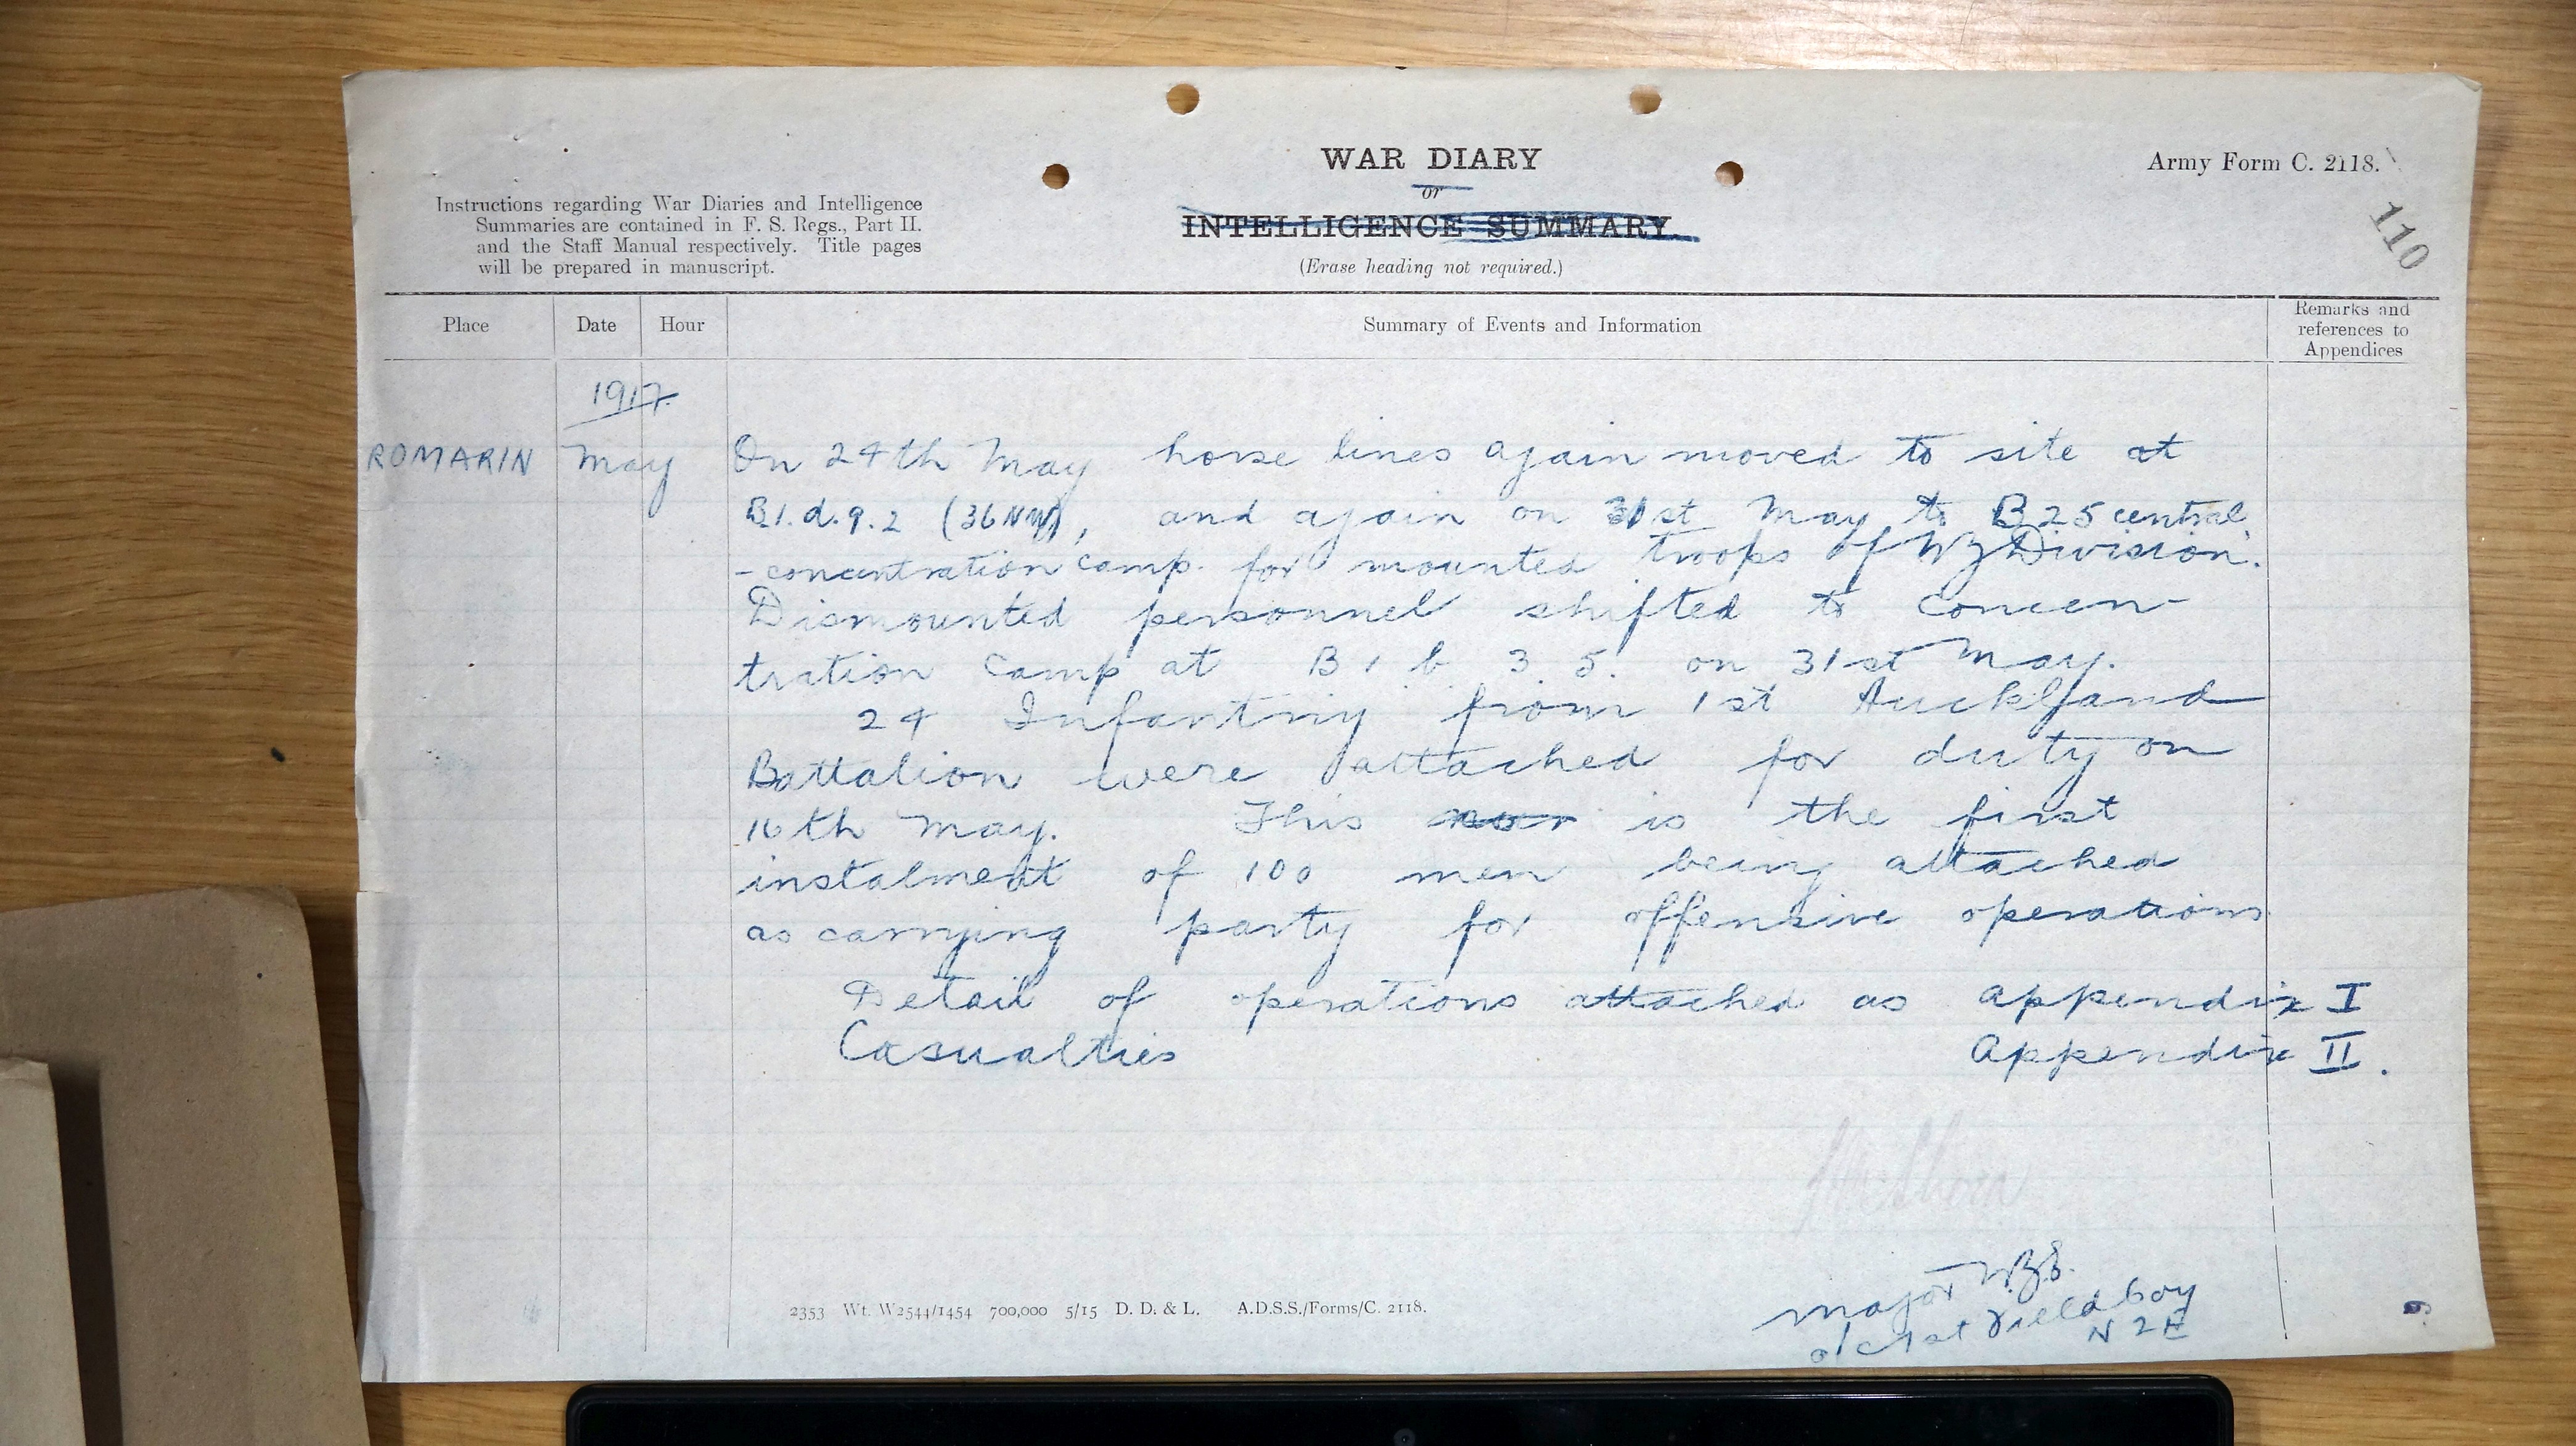 WAR DIARY
or
INTELLIGENCE SUMMARY.
(Erase heading not required.)
Army Form C. 2118.
110
Instructions regarding War Diaries and Intelligence
Summaries are contained in F. S. Regs., Part II.
and the Staff Manual respectively. Title pages
will be prepared in manuscript.
Place Date Hour Summary of Events and Information Remarks and
references to
Appendices
1917
ROMARIN May On 24th May horse lines again moved to site at
B1.d.9.2 (36NW), and again on 31st May to B25 central
- concentration camp for mounted troops of NZ Division.
Dismounted personnel shifted to concen-
tration camp at B 1 b 3. 5. on 31st May.
24 Infantry from 1st Auckland
Battalion were attached for duty on
16th May. This is the first
instalment of 100 men being attached
as carrying party for offensive operations
Detail of operations attached as appendix I
Casualties Appendix II.
Major NZE.
o/c 1st Field Coy
NZE
2353 Wt. W2544/1454 700,000 5/15 D. D. & L. A.D.S.S./Forms/C. 2118.